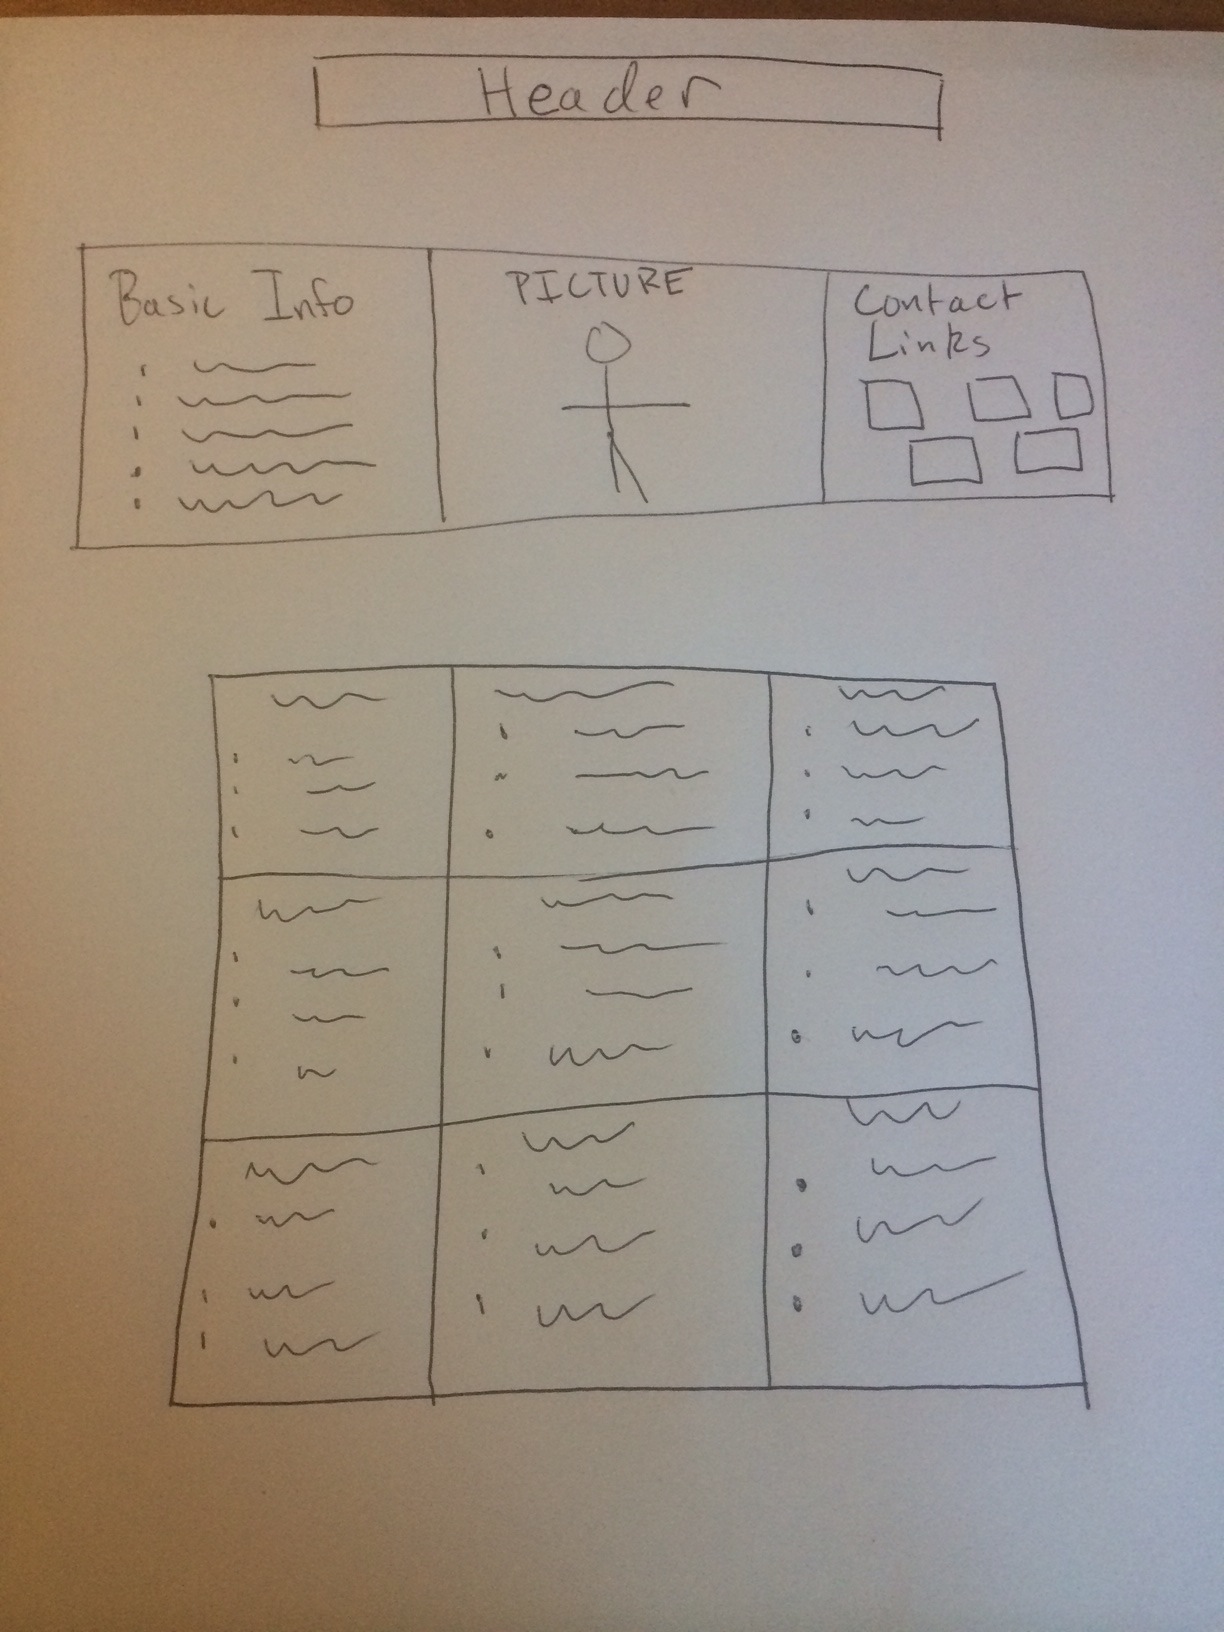 Header
Basic Info
PICTURE
Contact
Links